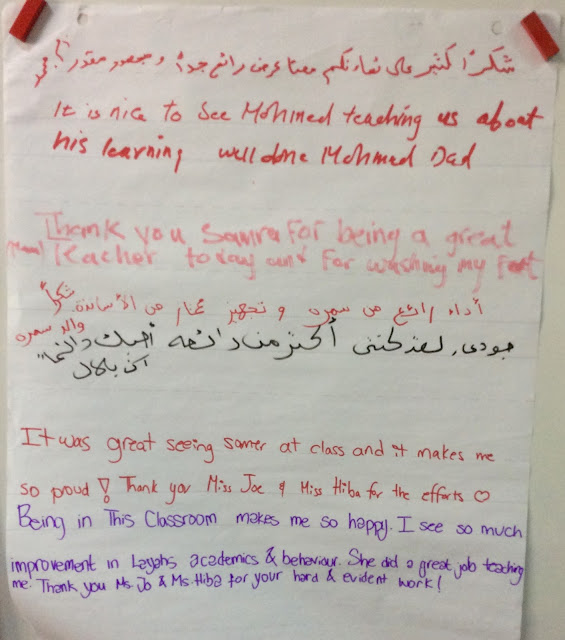 شكرًا كثير على تعاونكم معنا عرض رائع جدًا و مجهود مقدر
It is nice to see Mohmed teaching us about
his learning well done Mohmed Dad
Thank you Samra For being a great
Teacher today and for washing my Feet
شكراً
أداء رائع من سمره و تجهيز ممتاز من الأساتذة.
والد سمره
جودي، لقد كنتي أكثر من رائعه أحبك دائماً
It was great seeing samer at class and it makes me
so poud! Thank you Miss Joe & Miss Hiba for the efforts ♡
Being in This Classroom makes me so happy. I see so much
improvement in Layahs academics & behaviour. She did a great job teaching
me. Thank you Ms. Jo & Ms. Hiba for your hard & evident work!